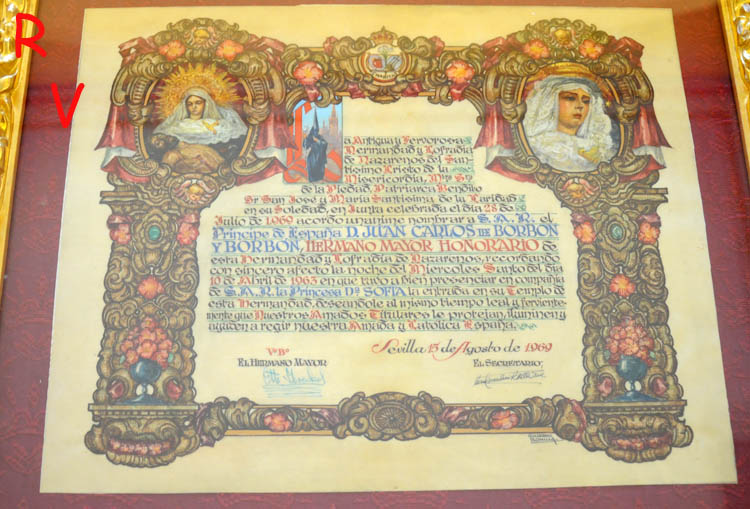 R
V
La Antigua y Fervorosa
Hermandad y Cofradía
de Nazarenos del San-
tísimo Cristo de la
Misericordia, Ntrª Sª
de la Piedad, Patriarca Bendito
Sr. San José y María Santísima de la Caridad
en su Soledad, en Junta celebrada el día 28 de
Julio de 1969 acordó unánime nombrar a S.A.R. el
Príncipe de España D. JUAN CARLOS DE BORBÓN
Y BORBÓN, HERMANO MAYOR HONORARIO de
esta Hermandad y Cofradía de Nazarenos, recordando
con sincero afecto la noche del Miércoles Santo del día
10 de Abril de 1963 en que tuvo a bien presenciar en compañía
de S.A.R. la Princesa Dª SOFIA la entrada en su Templo de
esta Hermandad, deseándole al mismo tiempo leal y ferviente-
mente que Nuestros Amados Titulares le protejan, iluminen y
ayuden a regir nuestra Amada y Católica España.
Sevilla 15 de Agosto de 1969
Vº Bº
EL HERMANO MAYOR
EL SECRETARIO,